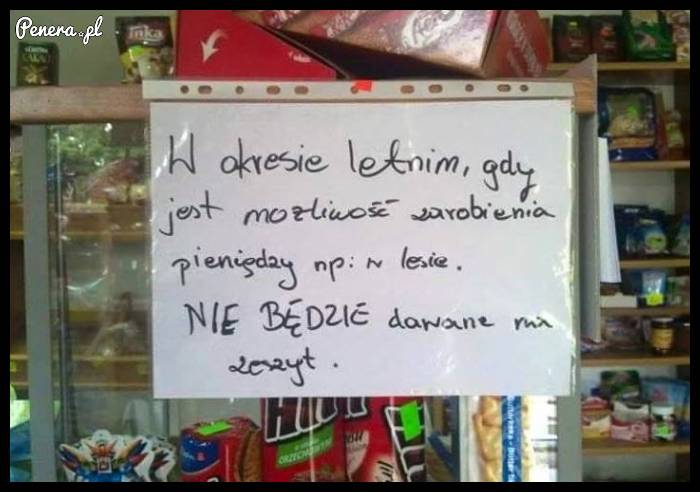 Penera.pl
Inka
KAKAO
W okresie letnim, gdy
jest możliwość zarobienia
pieniędzy np: w lesie.
NIE BĘDZIE dawane na
zeszyt.
ORZECHOWYM